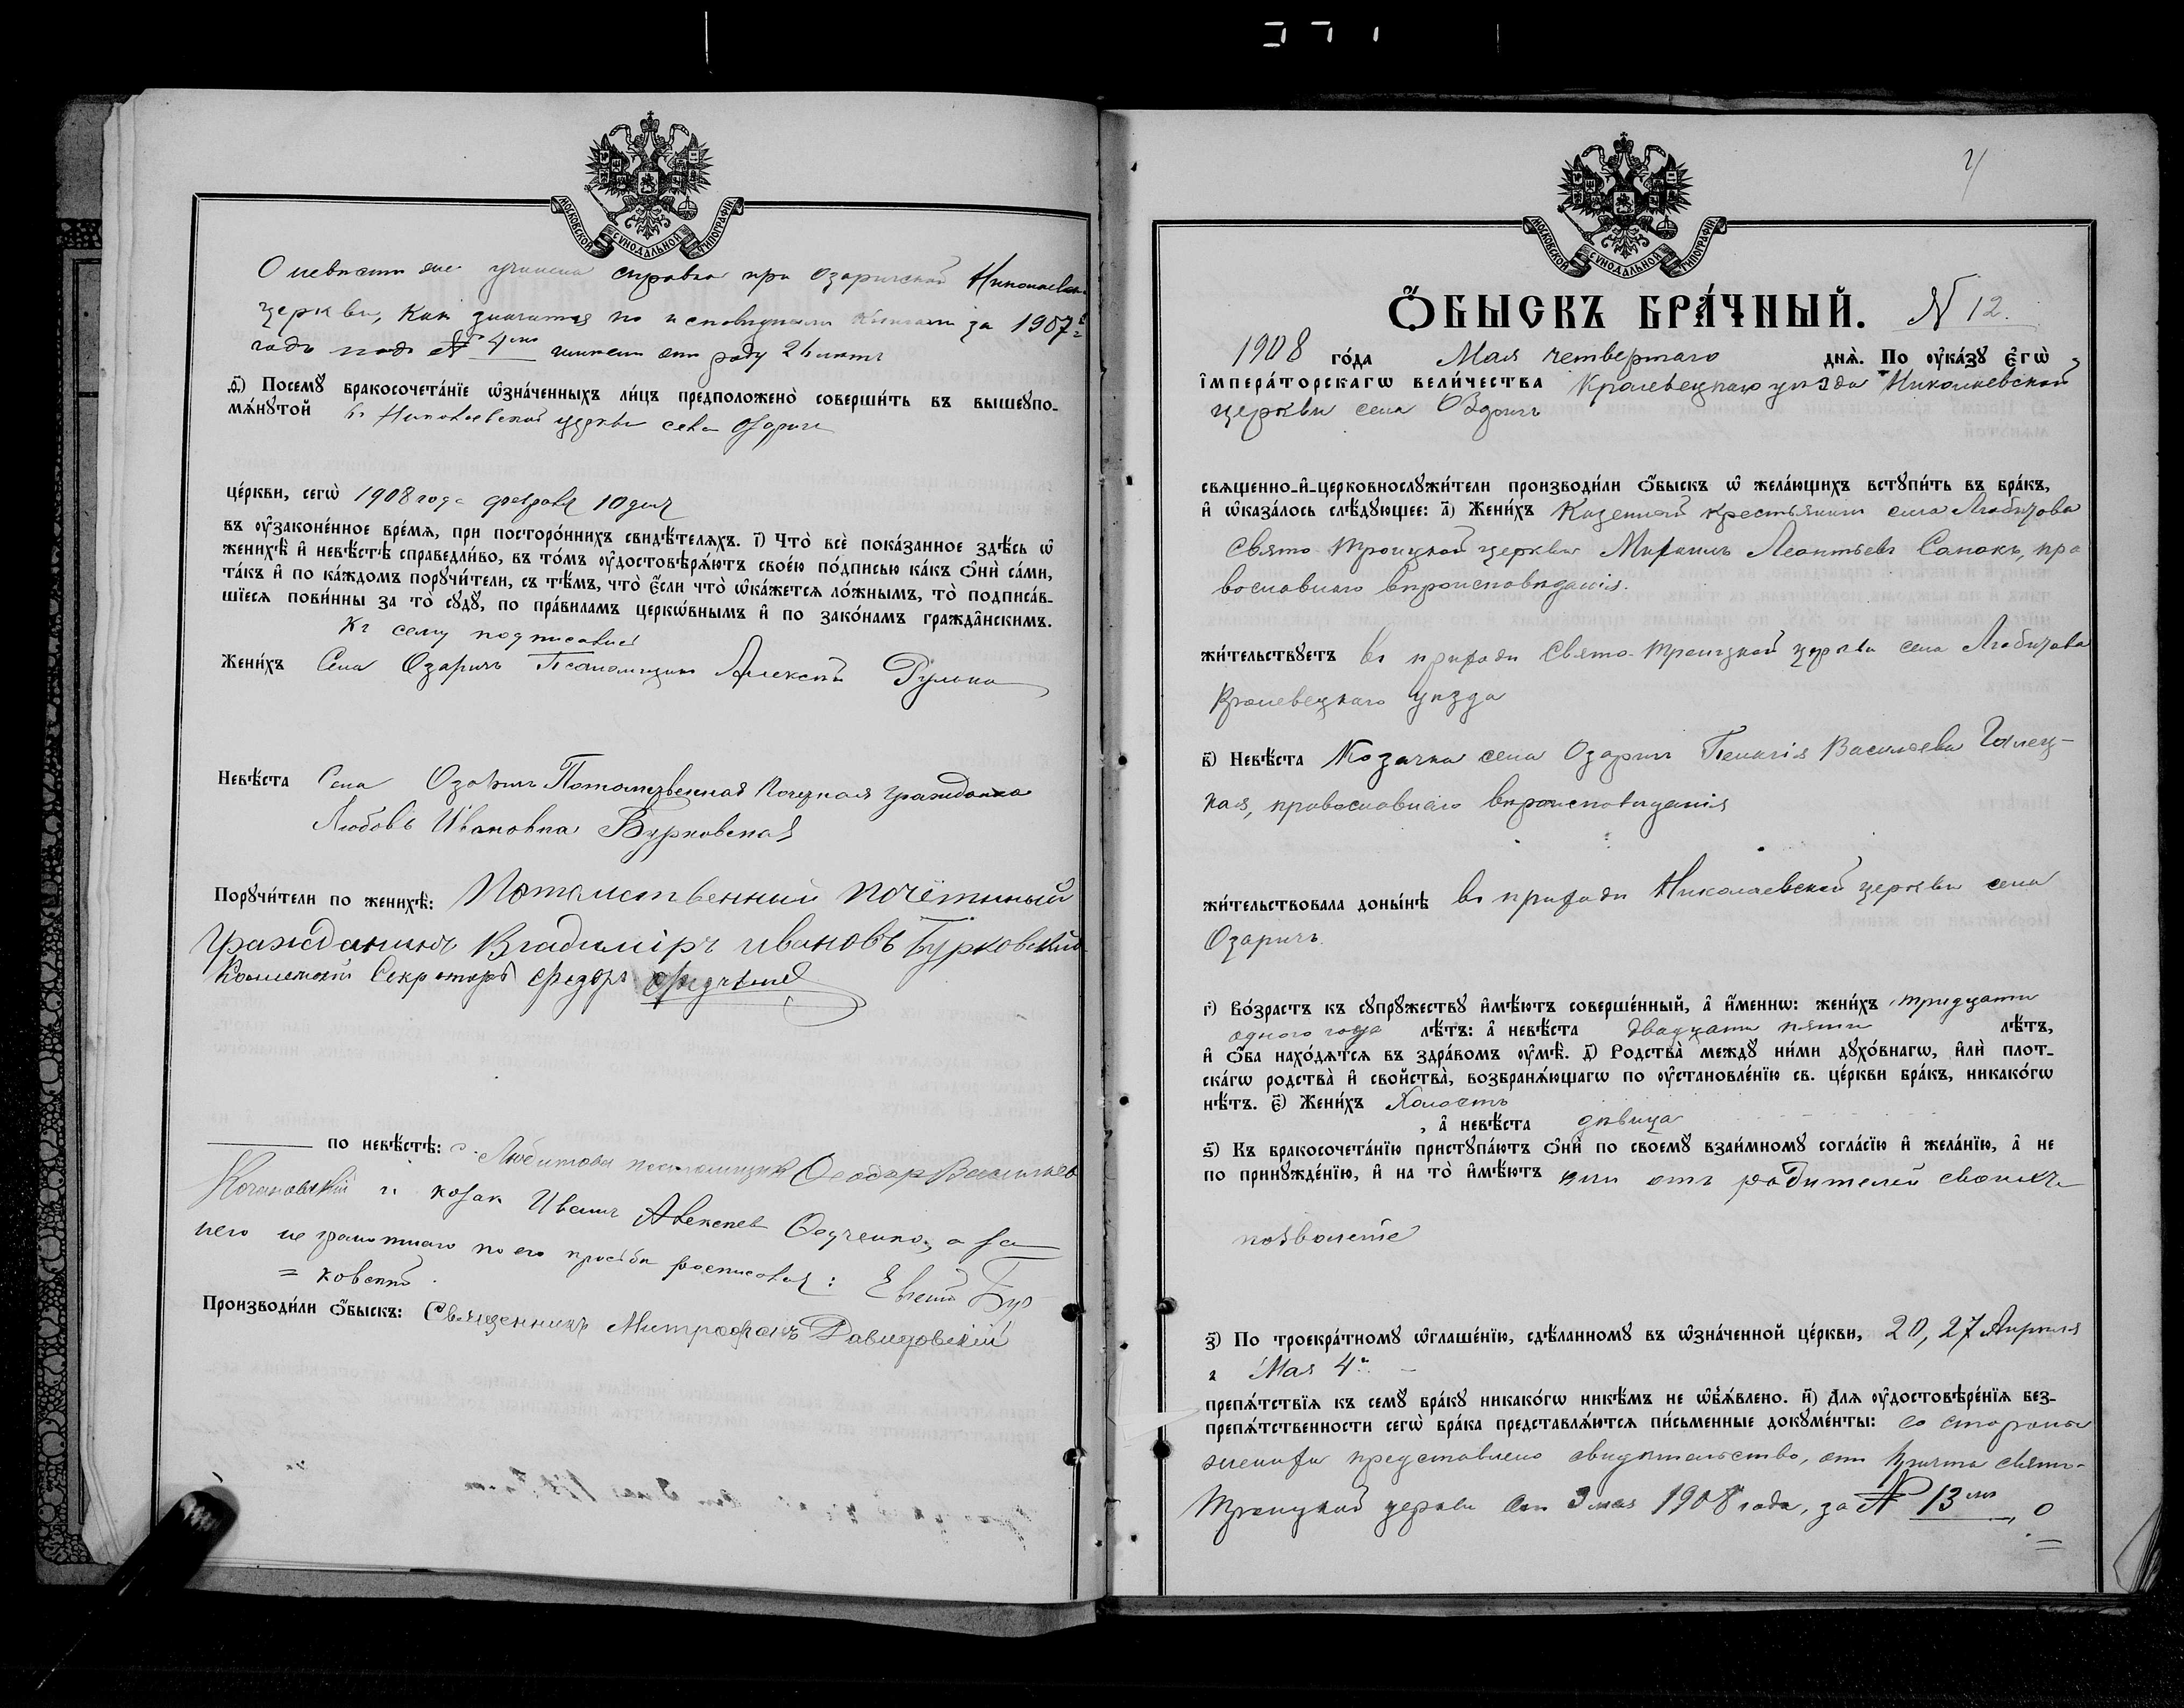 МОСКОВСКОЙ СѴНОДАЛЬНОЙ ТИПОГРАФІИ
О невѣстѣ же учинена справка при Озаричской Николаевск.
церкви, какъ значится по исповѣднымъ книгамъ за 1907й
годъ подъ № 4мъ имѣетъ отъ роду 26 лѣтъ
ѳ҃) Посемꙋ̀ бракосочета́нїе ѡ҆зна́ченныхъ ли́цъ предположено̀ соверши́ть въ вышеꙋпо-
мѧ́нꙋтой въ Николаевской церкви села Озаричъ
це́ркви, сегѡ̀ 1908 года февраля 10 дня
въ ᲂу҆законе́нное вре́мѧ, при посторо́ннихъ свидѣ́телѧхъ. і҃) Что̀ всѐ пока́занное здѣ́сь ѡ҆
женихѣ̀ и҆ невѣ́стѣ справедли́во, въ то́мъ ᲂу҆достовѣрѧ́ютъ свое́ю по́дписью ка́къ ѻ҆нѝ са́ми,
та́къ и҆ по ка́ждомъ порꙋчи́тели, съ тѣ́мъ, что̀ є҆́сли что̀ ѡ҆ка́жется ло́жнымъ, то̀ подписа́в-
шїеся пови́нны за то̀ сꙋдꙋ̀, по пра́виламъ церкѡ́внымъ и҆ по зако́намъ гражда̂нскимъ.
Къ сему подписались
Жени́хъ Села Озаричъ Псаломщикъ Алексѣй Рулько
Невѣ́ста Села Озаричъ Потомственная Почетная гражданка
Любовь Ивановна Бурковская
Порꙋчи́тели по женихѣ̀: Потомственный почётный
гражданинъ Владиміръ Ивановъ Бурковскій
Коллежскій Секретарь Ѳедоръ
по невѣ́стѣ: с. Любитова псаломщикъ Ѳеодоръ Васильевъ
и козак Иванъ Алексѣев Ѳедченко, а за
него не грамотнаго по его просьбѣ росписался: Евгеній Бур
= ковскій.
Производи́ли ѻ҆́быскъ: Священникъ Митрофанъ Давидовскій
МОСКОВСКОЙ СѴНОДАЛЬНОЙ ТИПОГРАФІИ
Ѻ҆́БЫСКЪ БРА́ЧНЫЙ. N 12.
1908 го́да Мая четвертаго днѧ̀. По ᲂу҆ка́зꙋ Є҆гѡ̀
і҆мпера́торскагѡ вели́чества Кролевецкаго уѣзда Николаевской
церкви села Озаричъ
свѧщенно-и҆-церковнослꙋжи́тели производи́ли ѻ҆́быскъ ѡ҆ жела́ющихъ встꙋпи́ть въ бра́къ,
и҆ ѡ҆каза́лось слѣ́дꙋющее: а҃) Жени́хъ Казенный крестьянинъ села Любитова
Свято Троицкой церкви Михаилъ Леонтьевъ Сапонъ, пра
вославнаго вѣроисповѣданія.
жи́тельствꙋетъ въ приходѣ Свято-Троицкой церкви села Любитова
Кролевецкаго уѣзда
в҃) Невѣ́ста Козачка села Озаричъ Пелагія Васильева Галец-
кая, православнаго вѣроисповѣданія
жи́тельствовала доны́нѣ въ приходѣ Николаевской церкви села
Озаричъ.
г҃) Во́зрастъ къ сꙋпрꙋжествꙋ̀ и҆мѣ́ютъ соверше́нный, а҆ и҆́меннѡ: жени́хъ тридцати
одного года лѣ́тъ: а҆ невѣ́ста двадцати пяти лѣ́тъ,
и҆ ѻ҆́ба нахо́дѧтся въ здра́вомъ ᲂу҆мѣ̀. д҃) Родства̀ междꙋ̀ ни́ми дꙋхо́внагѡ, и҆лѝ плот-
ска́гѡ родства̀ и҆ свойства̀, возбранѧ́ющагѡ по ᲂу҆становле́нїю св. це́ркви бра́къ, никако́гѡ
нѣ́тъ. є҃) Жени́хъ Холостъ
, а҆ невѣ́ста дѣвица
ѕ҃) Къ бракосочета́нїю пристꙋпа́ютъ ѻ҆нѝ по своемꙋ̀ взаи́мномꙋ согла́сїю и҆ жела́нїю, а҆ не
по принꙋжде́нїю, и҆ на то̀ и҆мѣ́ютъ они отъ родителей своихъ
позволеніе
з҃) По троекра́тномꙋ ѡ҆глаше́нїю, сдѣ́ланномꙋ въ ѡ҆зна́ченной це́ркви, 20, 27 Апрѣля
и Мая 4го
препѧ́тствїѧ къ семꙋ̀ бра́кꙋ никако́гѡ никѣ́мъ не ѡ҆бъѧ́влено. и҃) Для ᲂу҆достовѣре́нїѧ без-
препѧ́тственности сегѡ̀ бра́ка представлѧ́ются пи́сьменные докꙋме́нты: со стороны
жениха представлено свидѣтельство, отъ причта Свято-
Троицкой церкви отъ 3 мая 1908 года, за № 13мъ, О